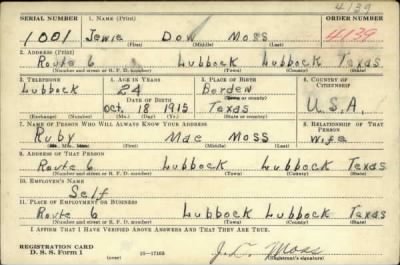 4139
SERIAL NUMBER 1. NAME (Print) ORDER NUMBER
1001 Jewie Dow Moss 4139
(First) (Middle) (Last)
2. ADDRESS (Print)
Route 6 Lubbock Lubbock Texas
(Number and street or R. F. D. number) (Town) (County) (State)
3. TELEPHONE 4. AGE IN YEARS 5. PLACE OF BIRTH 6. COUNTRY OF CITIZENSHIP
Lubbock 24 Borden
DATE OF BIRTH (Town or county)
Oct. 18 1915 Texas U.S.A.
(Exchange) (Number) (Mo.) (Day) (Yr.) (State or country)
7. NAME OF PERSON WHO WILL ALWAYS KNOW YOUR ADDRESS 8. RELATIONSHIP OF THAT PERSON
Ruby Mae Moss Wife
(Mr., Mrs., Miss) (First) (Middle) (Last)
9. ADDRESS OF THAT PERSON
Route 6 Lubbock Lubbock Texas
(Number and street or R. F. D. number) (Town) (County) (State)
10. EMPLOYER'S NAME
Self
11. PLACE OF EMPLOYMENT OR BUSINESS
Route 6 Lubbock Lubbock Texas
(Number and street or R. F. D. number) (Town) (County) (State)
I AFFIRM THAT I HAVE VERIFIED ABOVE ANSWERS AND THAT THEY ARE TRUE.
REGISTRATION CARD
D. S. S. Form 1 (over) 16-17105 J.D. Moss
(Registrant's signature)